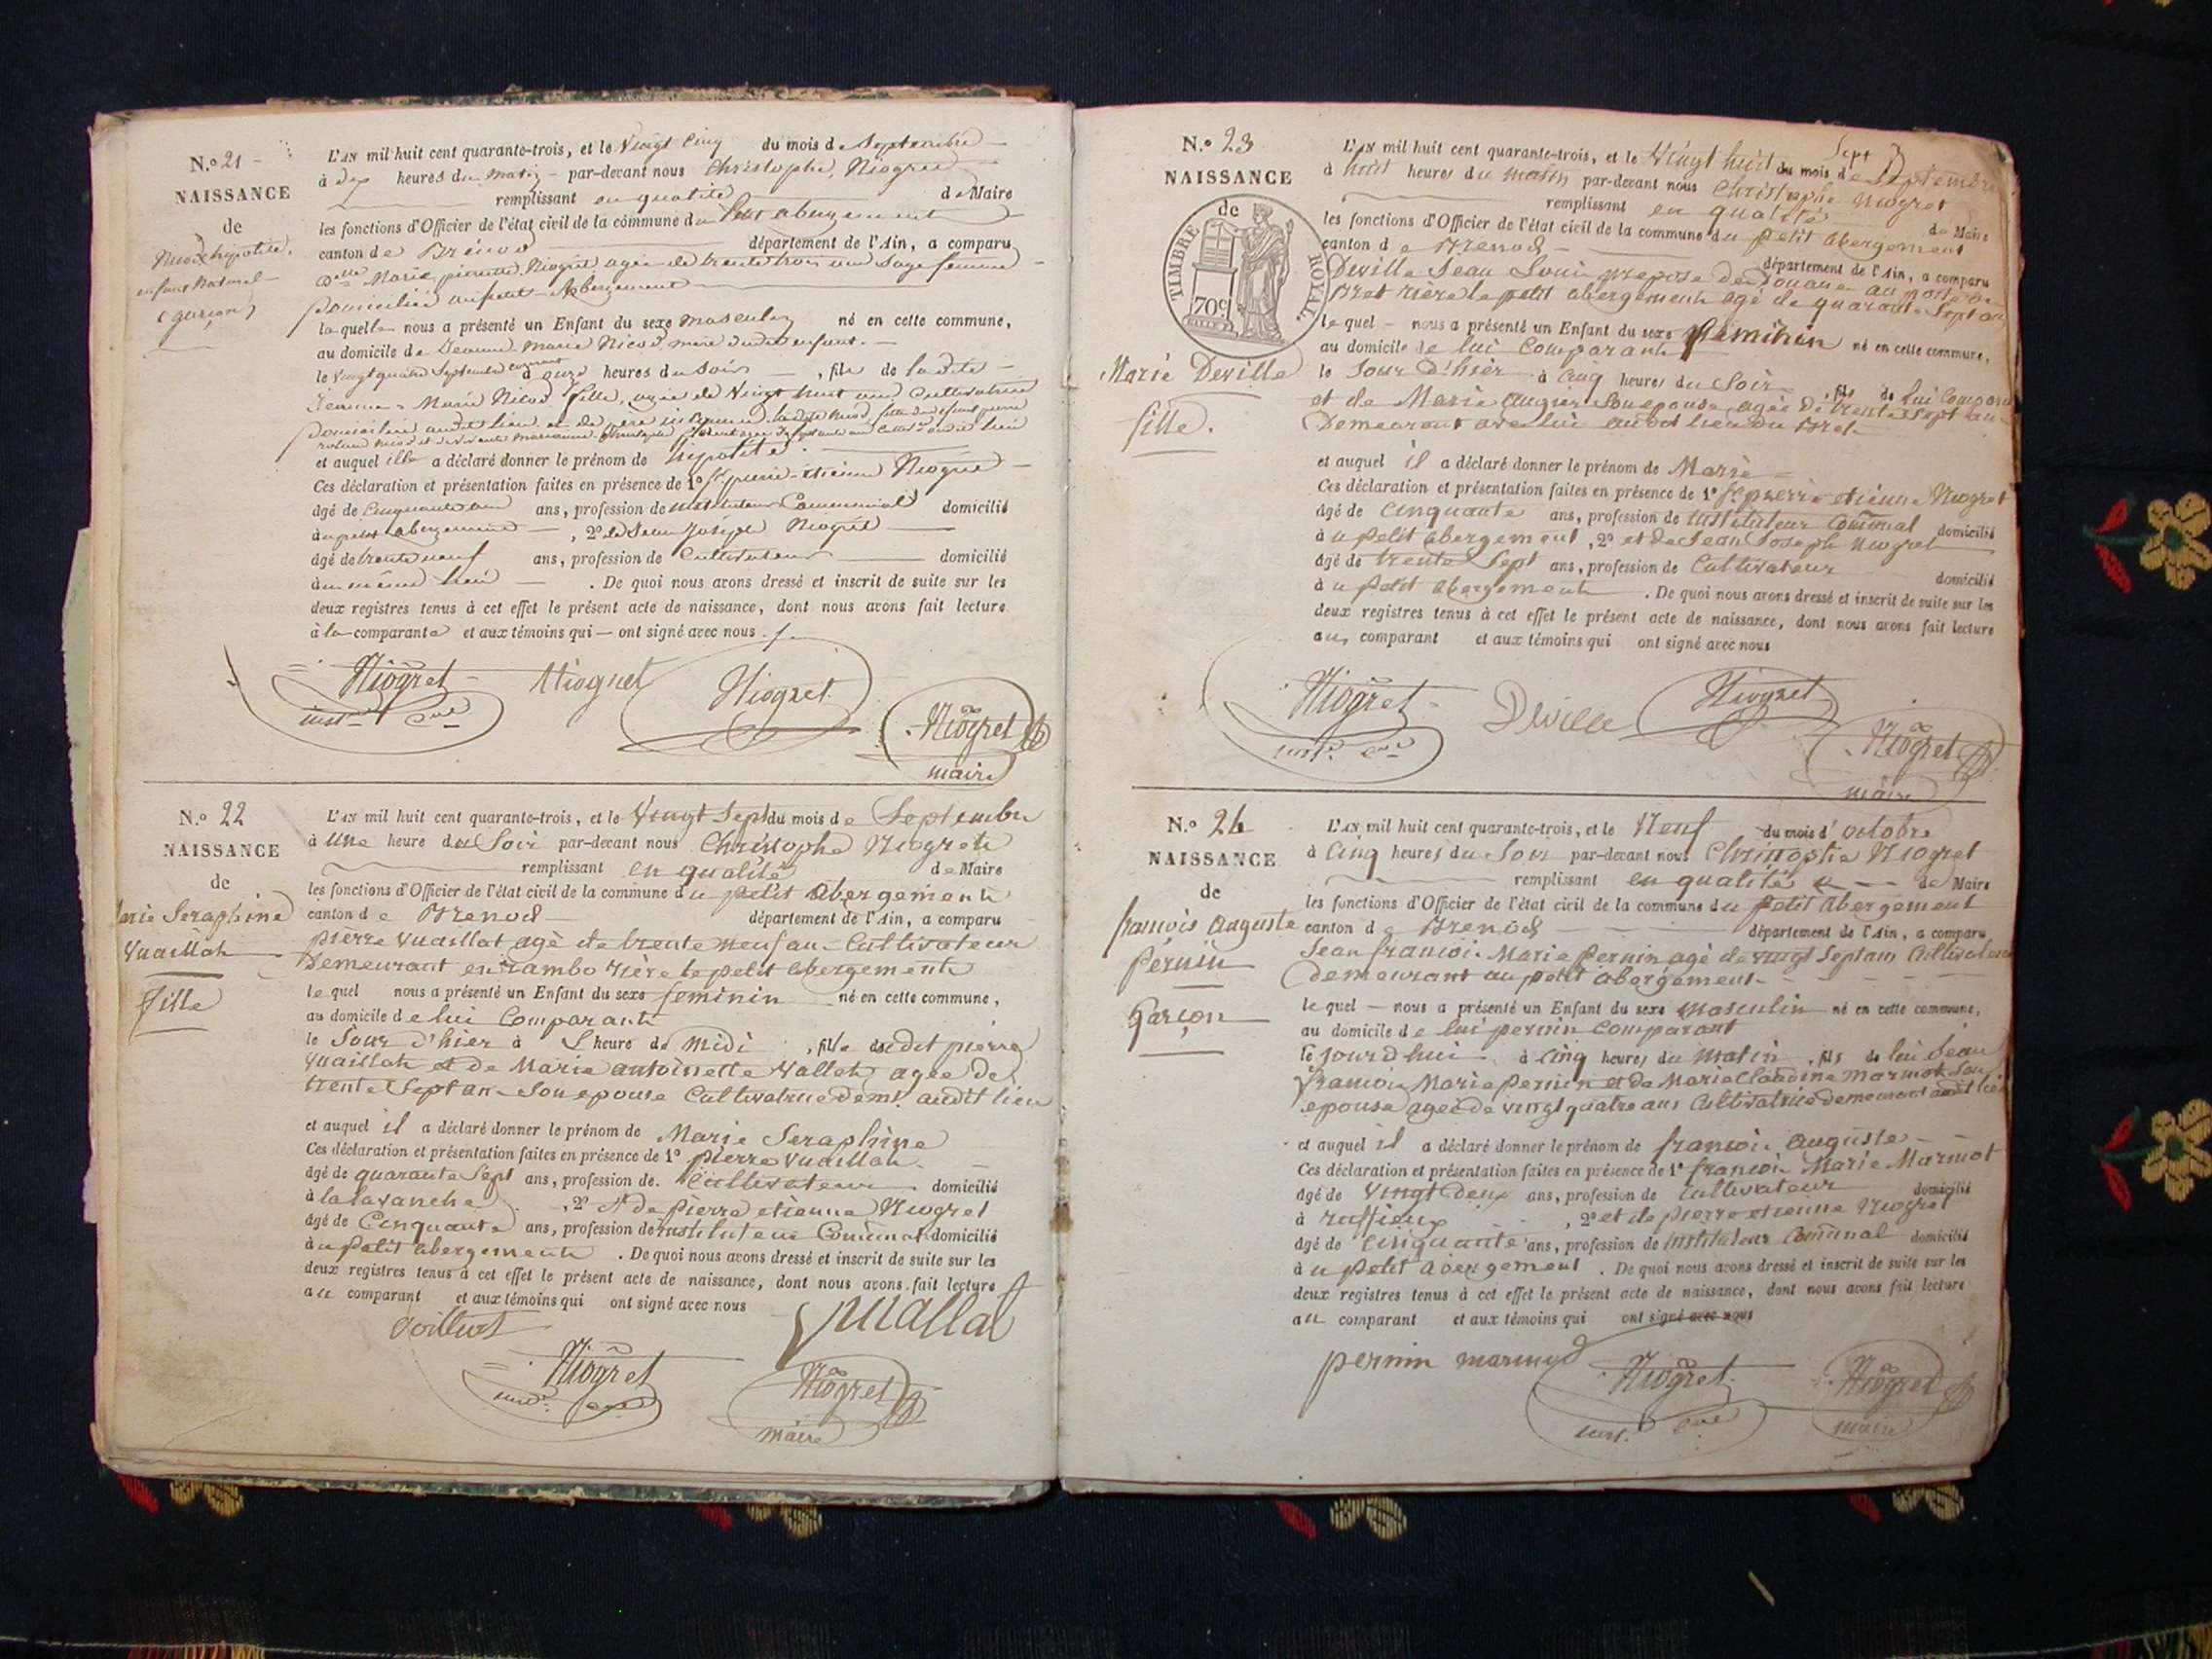 N.º 21
NAISSANCE
de
Nicod hipolite,
enfant Naturel
(garçon)
L'AN mil huit cent quarante-trois, et le Vingt Cinq du mois de Septembre
à dix heures du matin par-devant nous Christophe Niogret
remplissant en qualité de Maire
les fonctions d'Officier de l'état civil de la commune du Petit abergement
canton de Brénod département de l'Ain, a comparu
Dlle Marie pierrette Niogret agée de trente trois ans Sage femme
Domiciliée au petit Abergement
laquelle nous a présenté un Enfant du sexe masculin né en cette commune,
au domicile de Jeanne Marie Nicod mere dudit enfant.
le vingt quatre Septembre courant à onze heures du Soir, fils de ladite
Jeanne Marie Nicod fille, agée de Vingt huit ans Cultivatrice
Domiciliée audit lieu et de pere inconnu ladite Nicod, fille de defunt pierre
et auquel elle a déclaré donner le prénom de hipolite.
Ces déclaration et présentation faites en présence de 1º Sr pierre-étienne Niogret
âgé de Cinquante ans, profession de instituteur Communal domicilié
au petit abergement, 2º de Jean Joseph Niogret
âgé de trente neuf ans, profession de Cultivateur domicilié
au même lieu. De quoi nous avons dressé et inscrit de suite sur les
deux registres tenus à cet effet le présent acte de naissance, dont nous avons fait lecture
à la comparante et aux témoins qui ont signé avec nous.
Niogret Niogret Niogret Niogret
maire
N.º 22
NAISSANCE
de
Marie Seraphine
Vuaillat
fille
L'AN mil huit cent quarante-trois, et le Vingt Sept du mois de Septembre
à une heure du Soir par-devant nous Christophe Niogret
remplissant en qualité de Maire
les fonctions d'Officier de l'état civil de la commune du petit abergement
canton de Brenod département de l'Ain, a comparu
pierre Vuaillat agé de trente neuf an Cultivateur
Demeurant en rambo rière le petit abergement
lequel nous a présenté un Enfant du sexe feminin né en cette commune,
au domicile de lui Comparant
le Jour d'hier à L'heure de midi, fille dudit pierre
Vuaillat et de Marie antoinette Vallet agée de
trente Sept an Son epouse Cultivatrice demt. audit lieu
et auquel il a déclaré donner le prénom de Marie Seraphine
Ces déclaration et présentation faites en présence de 1º pierre Vuaillat
âgé de quarante Sept ans, profession de Cultivateur domicilié
à la lavanche, 2º de pierre etienne Niogret
âgé de Cinquante ans, profession de instituteur Communal domicilié
au petit abergement. De quoi nous avons dressé et inscrit de suite sur les
deux registres tenus à cet effet le présent acte de naissance, dont nous avons fait lecture
au comparant et aux témoins qui ont signé avec nous
Niogret Niogret
maire
N.º 23
NAISSANCE
de
TIMBRE ROYAL.
70c
Marie Deville
fille.
Sept
L'AN mil huit cent quarante-trois, et le Vingt huit du mois de Septembre
à huit heures du matin par-devant nous Christophe Niogret
remplissant en qualité de Maire
les fonctions d'Officier de l'état civil de la commune du petit abergement
canton de Brenod département de l'Ain, a comparu
Deville Jean Louis prepose des Douanes au poste du
Bret rière le petit abergement agé de quarante Sept ans
lequel nous a présenté un Enfant du sexe feminin né en cette commune,
au domicile de lui Comparant
le Jour d'hier à cinq heures du Soir, fils de lui Comparant
et de Marie augier Son epouse agée de trente Sept ans
Demeurant avec lui audit lieu du Bret
et auquel il a déclaré donner le prénom de Marie
Ces déclaration et présentation faites en présence de 1º Sr pierre etienne Niogret
âgé de Cinquante ans, profession de instituteur Communal domicilié
au petit abergement, 2º et de Jean Joseph Niogret
âgé de trente Sept ans, profession de Cultivateur domicilié
au petit abergement. De quoi nous avons dressé et inscrit de suite sur les
deux registres tenus à cet effet le présent acte de naissance, dont nous avons fait lecture
aux comparant et aux témoins qui ont signé avec nous
Niogret Deville Niogret Niogret
maire
N.º 24
NAISSANCE
de
françois auguste
Pernin
Garçon
L'AN mil huit cent quarante-trois, et le Neuf du mois d'octobre
à Cinq heures du Soir par-devant nous Christophe Niogret
remplissant en qualité de Maire
les fonctions d'Officier de l'état civil de la commune du petit abergement
canton de Brenod département de l'Ain, a comparu
Jean francois Marie Pernin agé de vingt Sept ans Cultivateur
demeurant au petit abergement
lequel nous a présenté un Enfant du sexe masculin né en cette commune,
au domicile de lui pernin Comparant
le jourd'hui à cinq heures du matin, fils de lui Jean
francois Marie Pernin et de Marie Claudine Marmot Son
epouse agée de vingt quatre ans Cultivatrice demeurant audit lieu
et auquel il a déclaré donner le prénom de francois auguste
Ces déclaration et présentation faites en présence de 1º francois Marie Marmot
âgé de Vingt Deux ans, profession de Cultivateur domicilié
à ruffieux, 2º et de pierre etienne Niogret
âgé de cinquante ans, profession de instituteur Communal domicilié
au petit abergement. De quoi nous avons dressé et inscrit de suite sur les
deux registres tenus à cet effet le présent acte de naissance, dont nous avons fait lecture
au comparant et aux témoins qui ont signé avec nous
pernin Niogret Niogret
maire